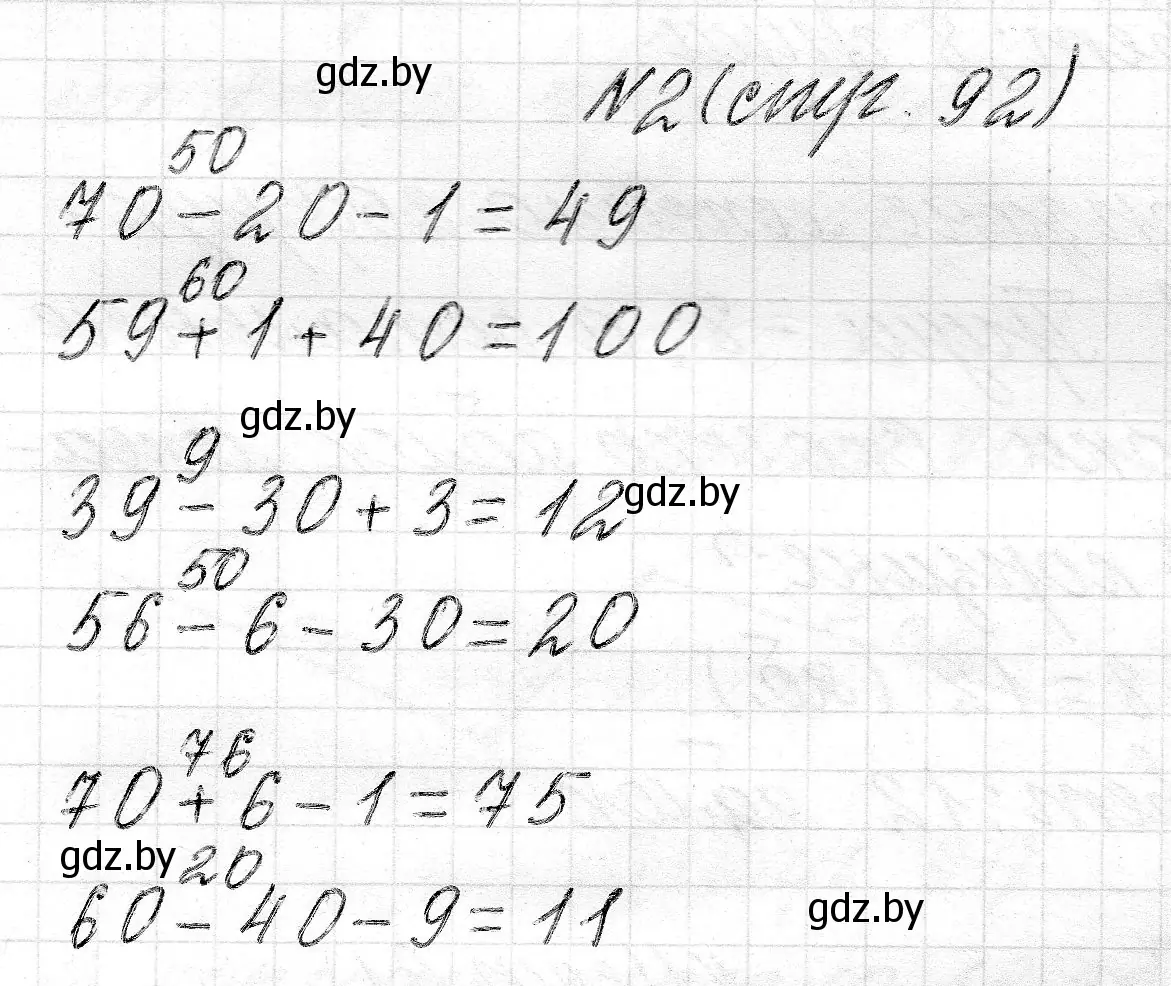 gdz.by
N2 (стр. 92)
50
70 - 20 - 1 = 49
60
59 + 1 + 40 = 100
gdz.by
9
39 - 30 + 3 = 12
gdz.by
50
56 - 6 - 30 = 20
76
70 + 6 - 1 = 75
gdz.by
20
60 - 40 - 9 = 11
gdz.by